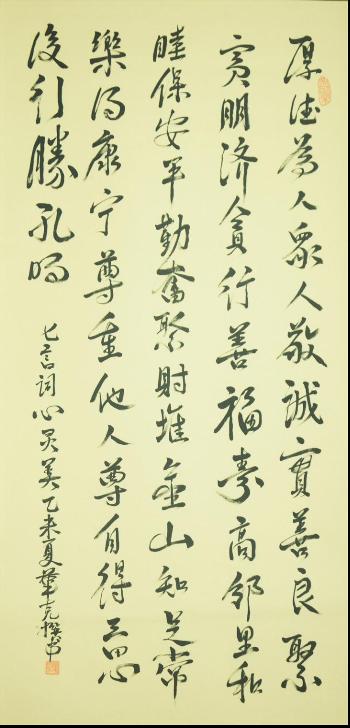 厚德為人眾人敬誠實善良聚
賓朋济貧行善福壽高邻里和
睦保安平勤奮聚財堆金山知足常
樂得康宁尊重他人尊自得三思
後行勝孔明
七言词心灵美乙未夏撰書